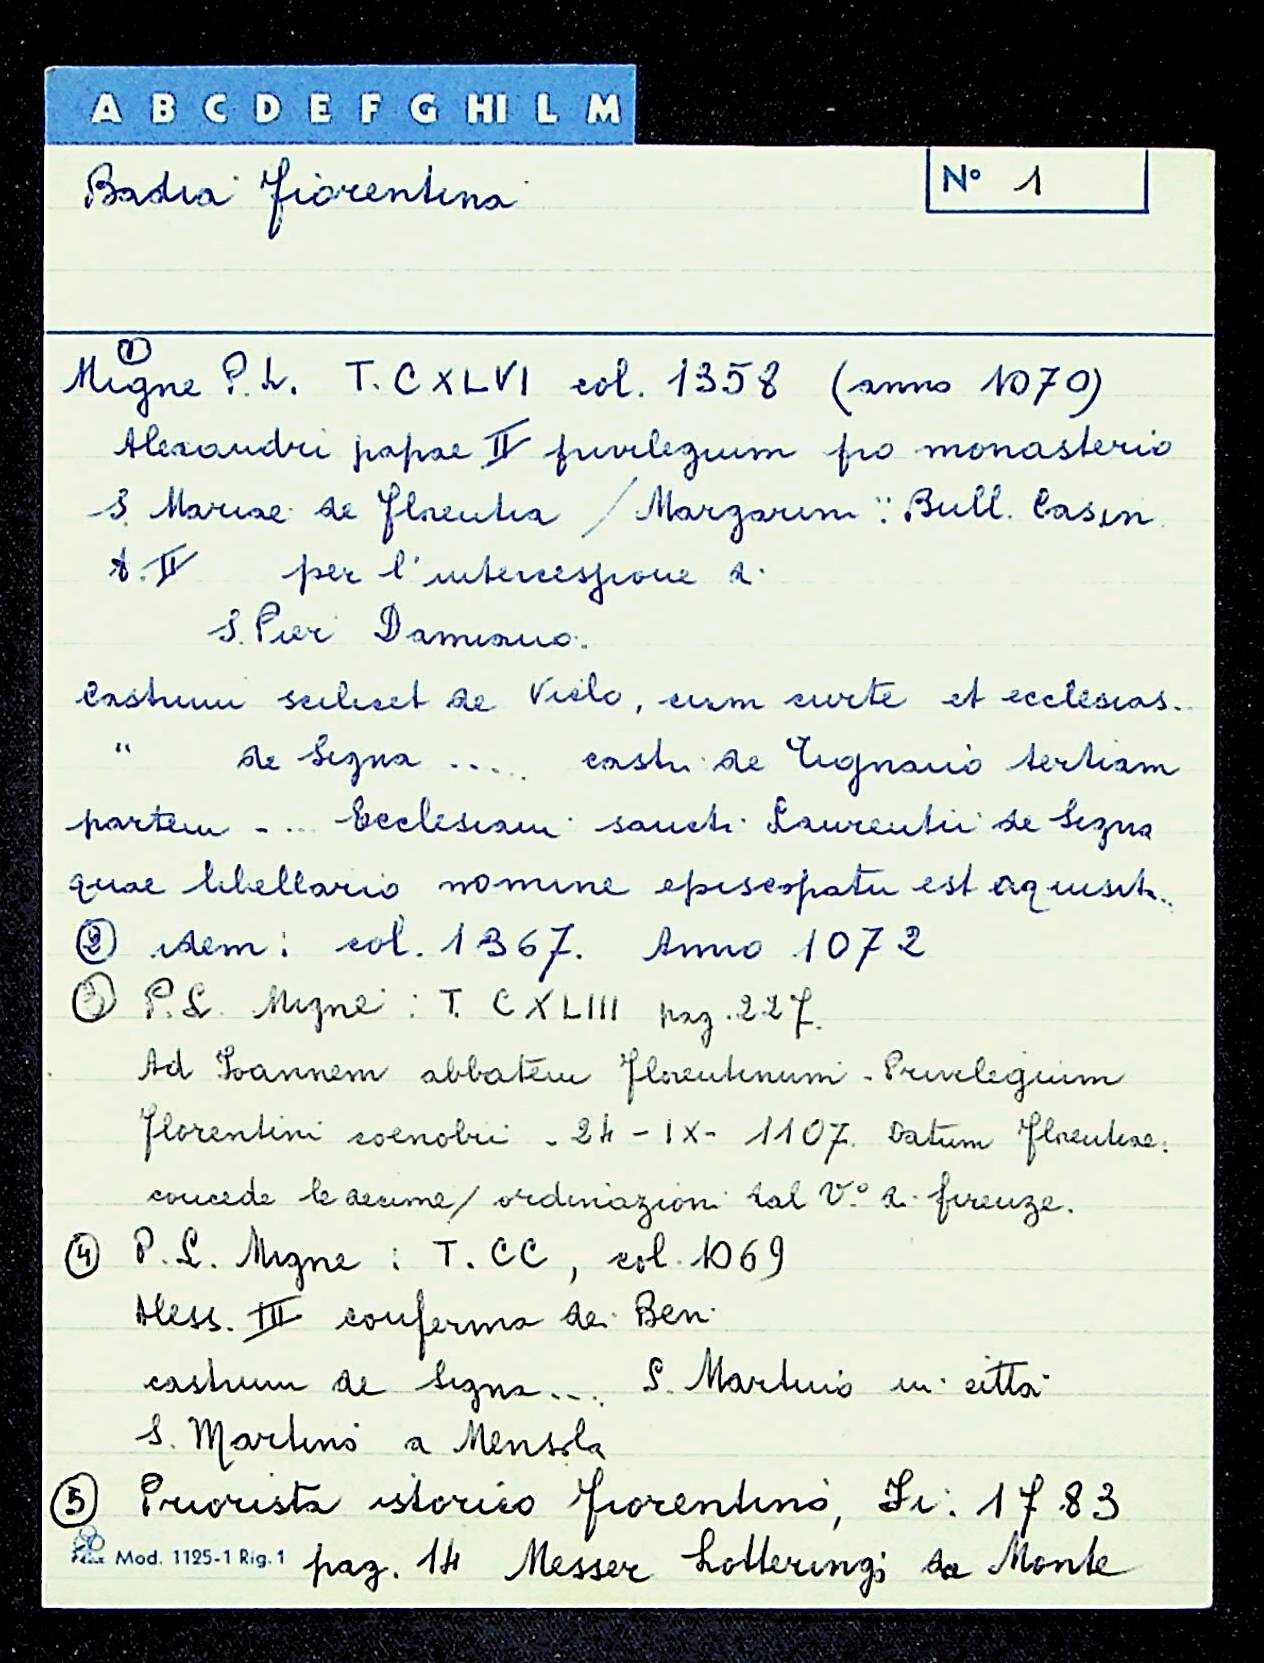 A B C D E F G HI L M
Badia Fiorentina
N° 1
① Migne P.L. T. CXLVI col. 1358 (anno 1070)
Alexandri papae II privilegium pro monasterio
S. Mariae de Florentia / Margarini: Bull. Casin.
t. II per l'intercessione di
S. Pier Damiano.
Castrum scilicet de Viclo, cum curte et ecclesias..
" de Signa .... castri de Tignano tertiam
partem .... Ecclesiam sancti Laurentii de Signa
quae libellario nomine episcopatu est aquisit..
② idem: col. 1367. Anno 1072
③ P.L. Migne: T. CXLIII pag. 227.
Ad Ioannem abbatem Florentinum - Privilegium
Florentini coenobii - 24 - IX - 1107. Datum Florentiae.
concede le decime / ordinazioni dal V.° di Firenze.
④ P.L. Migne: T. CC, col. 1069
Aless. III conferma dei Beni
castrum de Signa... S. Martino in città
S. Martino a Mensola
⑤ Priorista istorico fiorentino, Fi: 1783
Mod. 1125-1 Rig. 1 pag. 14 Messer Lotteringi da Monte